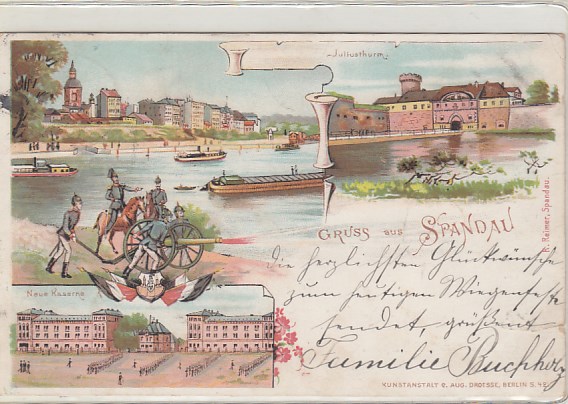 Juliusthurm
GRUSS AUS SPANDAU
Die herzlichsten Glückwünsche
zum heutigen Wiegenfeste
sendet, grüßend
Familie Buchholz
Neue Kaserne
KUNSTANSTALT V. AUG. DROESSE, BERLIN S. 42.
Reimer, Spandau.